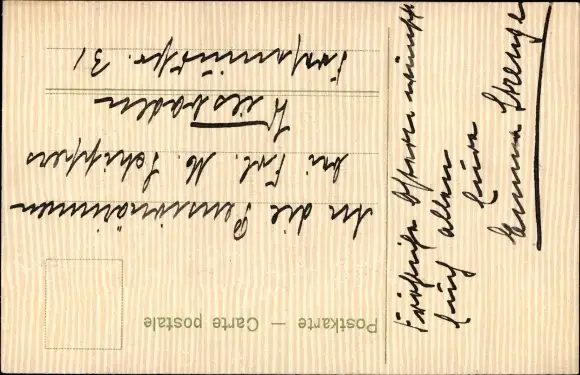 Postkarte — Carte postale
An die Pensionärinnen
bei Frl. M. Schippers
Wiesbaden
31
Fröhliche Ostern wünscht
Euch allen
Eure
Emma Strenge